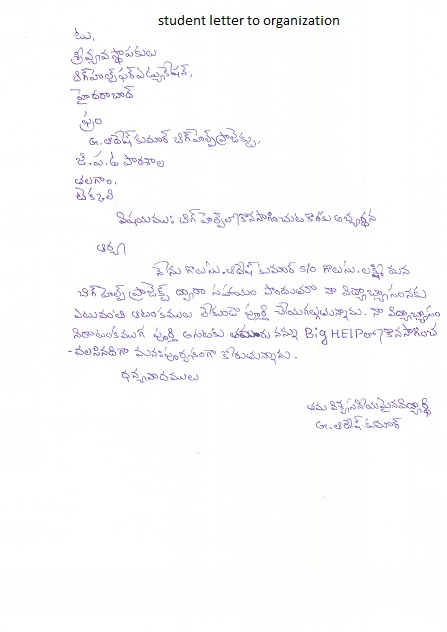 student letter to organization
టు,
శ్రీ వ్యవస్థాపకులు
బిగ్ హెల్ప్ ఫర్ ఎడ్యుకేషన్,
హైదరాబాద్
ఫ్రం
G. ఆదేష్ కుమార్ బిగ్ హెల్ప్ ప్రాజెక్టు,
జి.ప.ఉ పాఠశాల
తలగాం,
టెక్కలి
విషయము: బిగ్ హెల్ప్ లో కొనసాగించుట కొరకు అభ్యర్థన
ఆర్యా
నేను గొలుసు. ఆదేష్ కుమార్ S/o గొలుసు. లక్ష్మి
బిగ్ హెల్ప్ ప్రాజెక్ట్ ద్వారా సహాయం పొందుతూ నా విద్యాభ్యాసంనకు
ఎటువంటి ఆటంకములు లేకుండా పూర్తి చేయగల్గుతున్నాను. నా విద్యాభ్యాసం
నిరాటంకముగ పూర్తి అగుటకు తమరు నన్ను Big HElP లో కొనసాగించ
-వలసినదిగా మనఃపూర్వకంగా కోరుతున్నాను.
ధన్యవాదములు
తమ విశ్వసనీయమైన విద్యార్థి
G. ఆదేష్ కుమార్